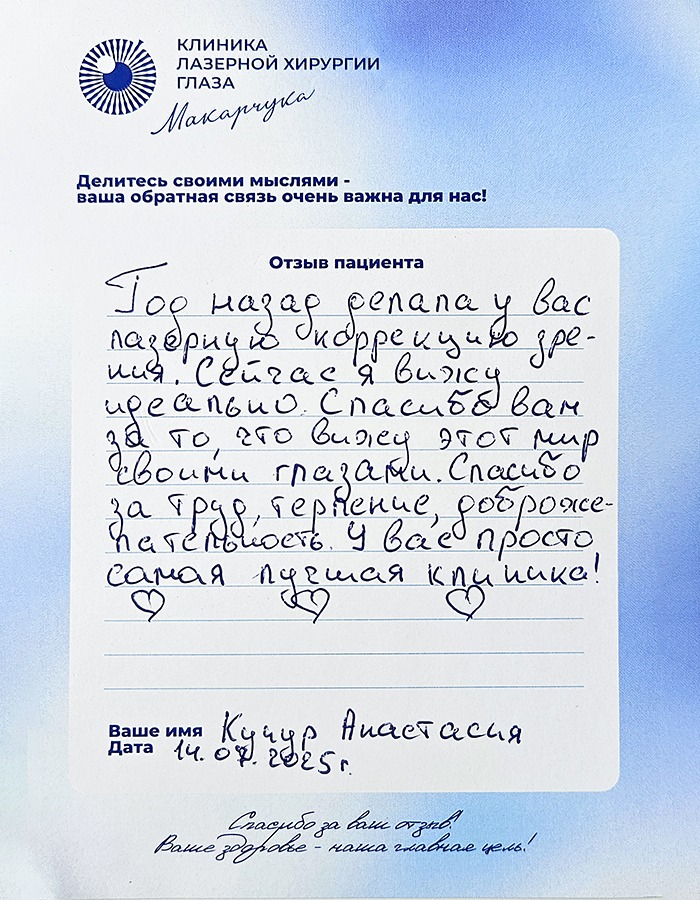 КЛИНИКА
ЛАЗЕРНОЙ ХИРУРГИИ
ГЛАЗА
Макарчука
Делитесь своими мыслями -
ваша обратная связь очень важна для нас!
Отзыв пациента
Год назад делала у вас
лазерную коррекцию зре-
ния. Сейчас я вижу
идеально. Спасибо вам
за то, что вижу этот мир
своими глазами. Спасибо
за труд, терпение, доброже-
лательность. У вас просто
самая лучшая клиника!
Ваше имя Кучур Анастасия
Дата 14.07.2025г.
Спасибо за ваш отзыв!
Ваше здоровье - наша главная цель!